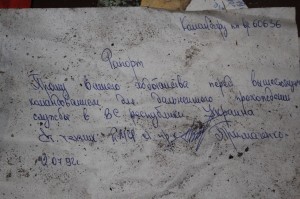 Командиру в/ч 60636
Рапорт
Прошу Вашего ходатайства перед вышестоящим
командованием для дальнейшего прохождения
службы в ВС республики Украина
Ст. техник